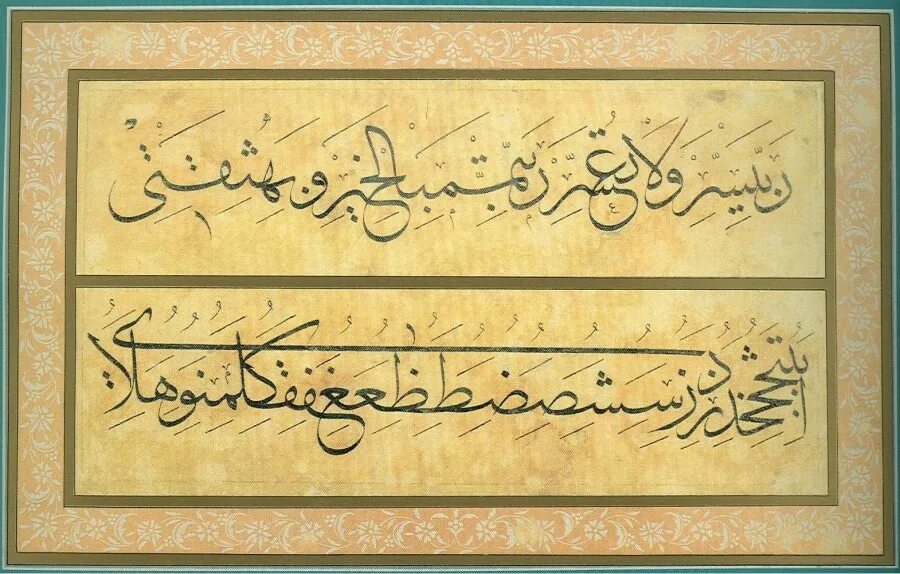 رَبِّ يَسِّرْ وَلَا تُعَسِّرْ رَبِّ تَمِّمْ بِالْخَيْرِ وَبِهِ ثِقَتِي
ابتثجحخدذرزسشصضطظعغفقكلمنوهلاي